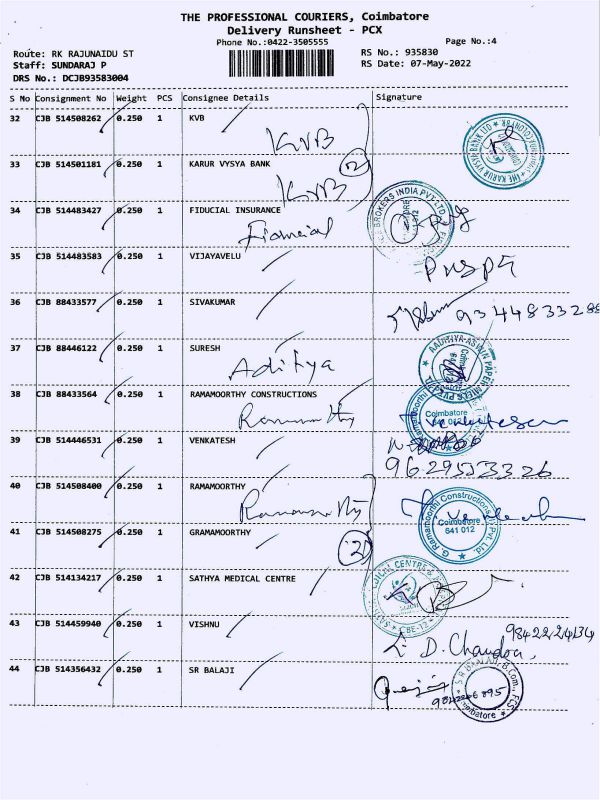 THE PROFESSIONAL COURIERS, Coimbatore
Delivery Runsheet - PCX
Phone No.:0422-3505555 Page No.:4
Route: RK RAJUNAIDU ST RS No.: 935830
Staff: SUNDARAJ P RS Date: 07-May-2022
DRS No.: DCJB93583004
S No Consignment No Weight PCS Consignee Details Signature
32 CJB 514508262 0.250 1 KVB
KVB
33 CJB 514501181 0.250 1 KARUR VYSYA BANK
KVB
2
34 CJB 514483427 0.250 1 FIDUCIAL INSURANCE
BROKERS INDIA PVT LTD
Financial
35 CJB 514483583 0.250 1 VIJAYAVELU
36 CJB 88433577 0.250 1 SIVAKUMAR
37 CJB 88446122 0.250 1 SURESH
Aditya
AADITYA ASWIN PAPER MILLS PVT LTD
38 CJB 88433564 0.250 1 RAMAMOORTHY CONSTRUCTIONS
Coimbatore
Ramamoorthy
39 CJB 514446531 0.250 1 VENKATESH
9629533326
40 CJB 514508400 0.250 1 RAMAMOORTHY
Ramamoorthy
G. Ramamoorthi Constructions (I) Pvt. Ltd.
Coimbatore
641 012
41 CJB 514508275 0.250 1 GRAMAMOORTHY
2
42 CJB 514134217 0.250 1 SATHYA MEDICAL CENTRE
CBE-12
43 CJB 514459940 0.250 1 VISHNU
9842224134
D. Chandra
44 CJB 514356432 0.250 1 SR BALAJI
S R BALAJI, B.Com., FCS